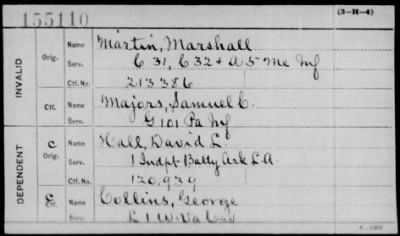 155110
(3-H-4)
INVALID
Orig. Name Martin, Marshall
Serv. C 31, C 32 & A 5 Me Inf
Ctf. No. 213386
Ctf. Name Majors, Samuel C.
Serv. G 101 Pa Inf
DEPENDENT
C Orig. Name Hall, David L.
Serv. 1 Indpt. Batty Ark L.A.
Ctf. No. 120,939
C Ctf. Name Collins, George
Serv. L 1 W. Va Cav